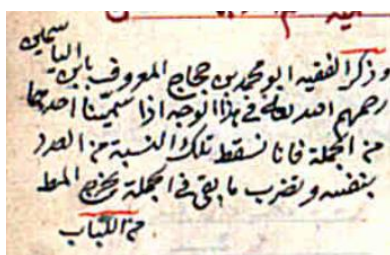 وذكر الفقيه ابو محمد بن حجاج المعروف بابن الياسمين
رحمهم الله تعالى في هذا الوجه اذا سمينا احدهما
من الجملة فانا نسقط تلك النسبة من العدد
بنفسه ونضرب ما بقي في الجملة يخرج المط
من الكتاب